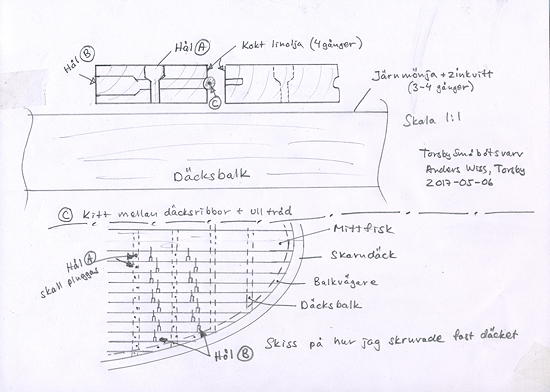 Hål B
Hål A
Kokt linolja (4 gånger)
Järnmönja + zinkvitt
(3-4 gånger)
C
Skala 1:1
Däcksbalk
Torsby Småbåtsvarv
Anders Wiss, Torsby
2017-05-06
C Kitt mellan däcksribbor + ulltråd
Mittfisk
Hål A
skall pluggas
Skarndäck
Balkvägare
Däcksbalk
Hål B
Skiss på hur jag skruvade fast däcket